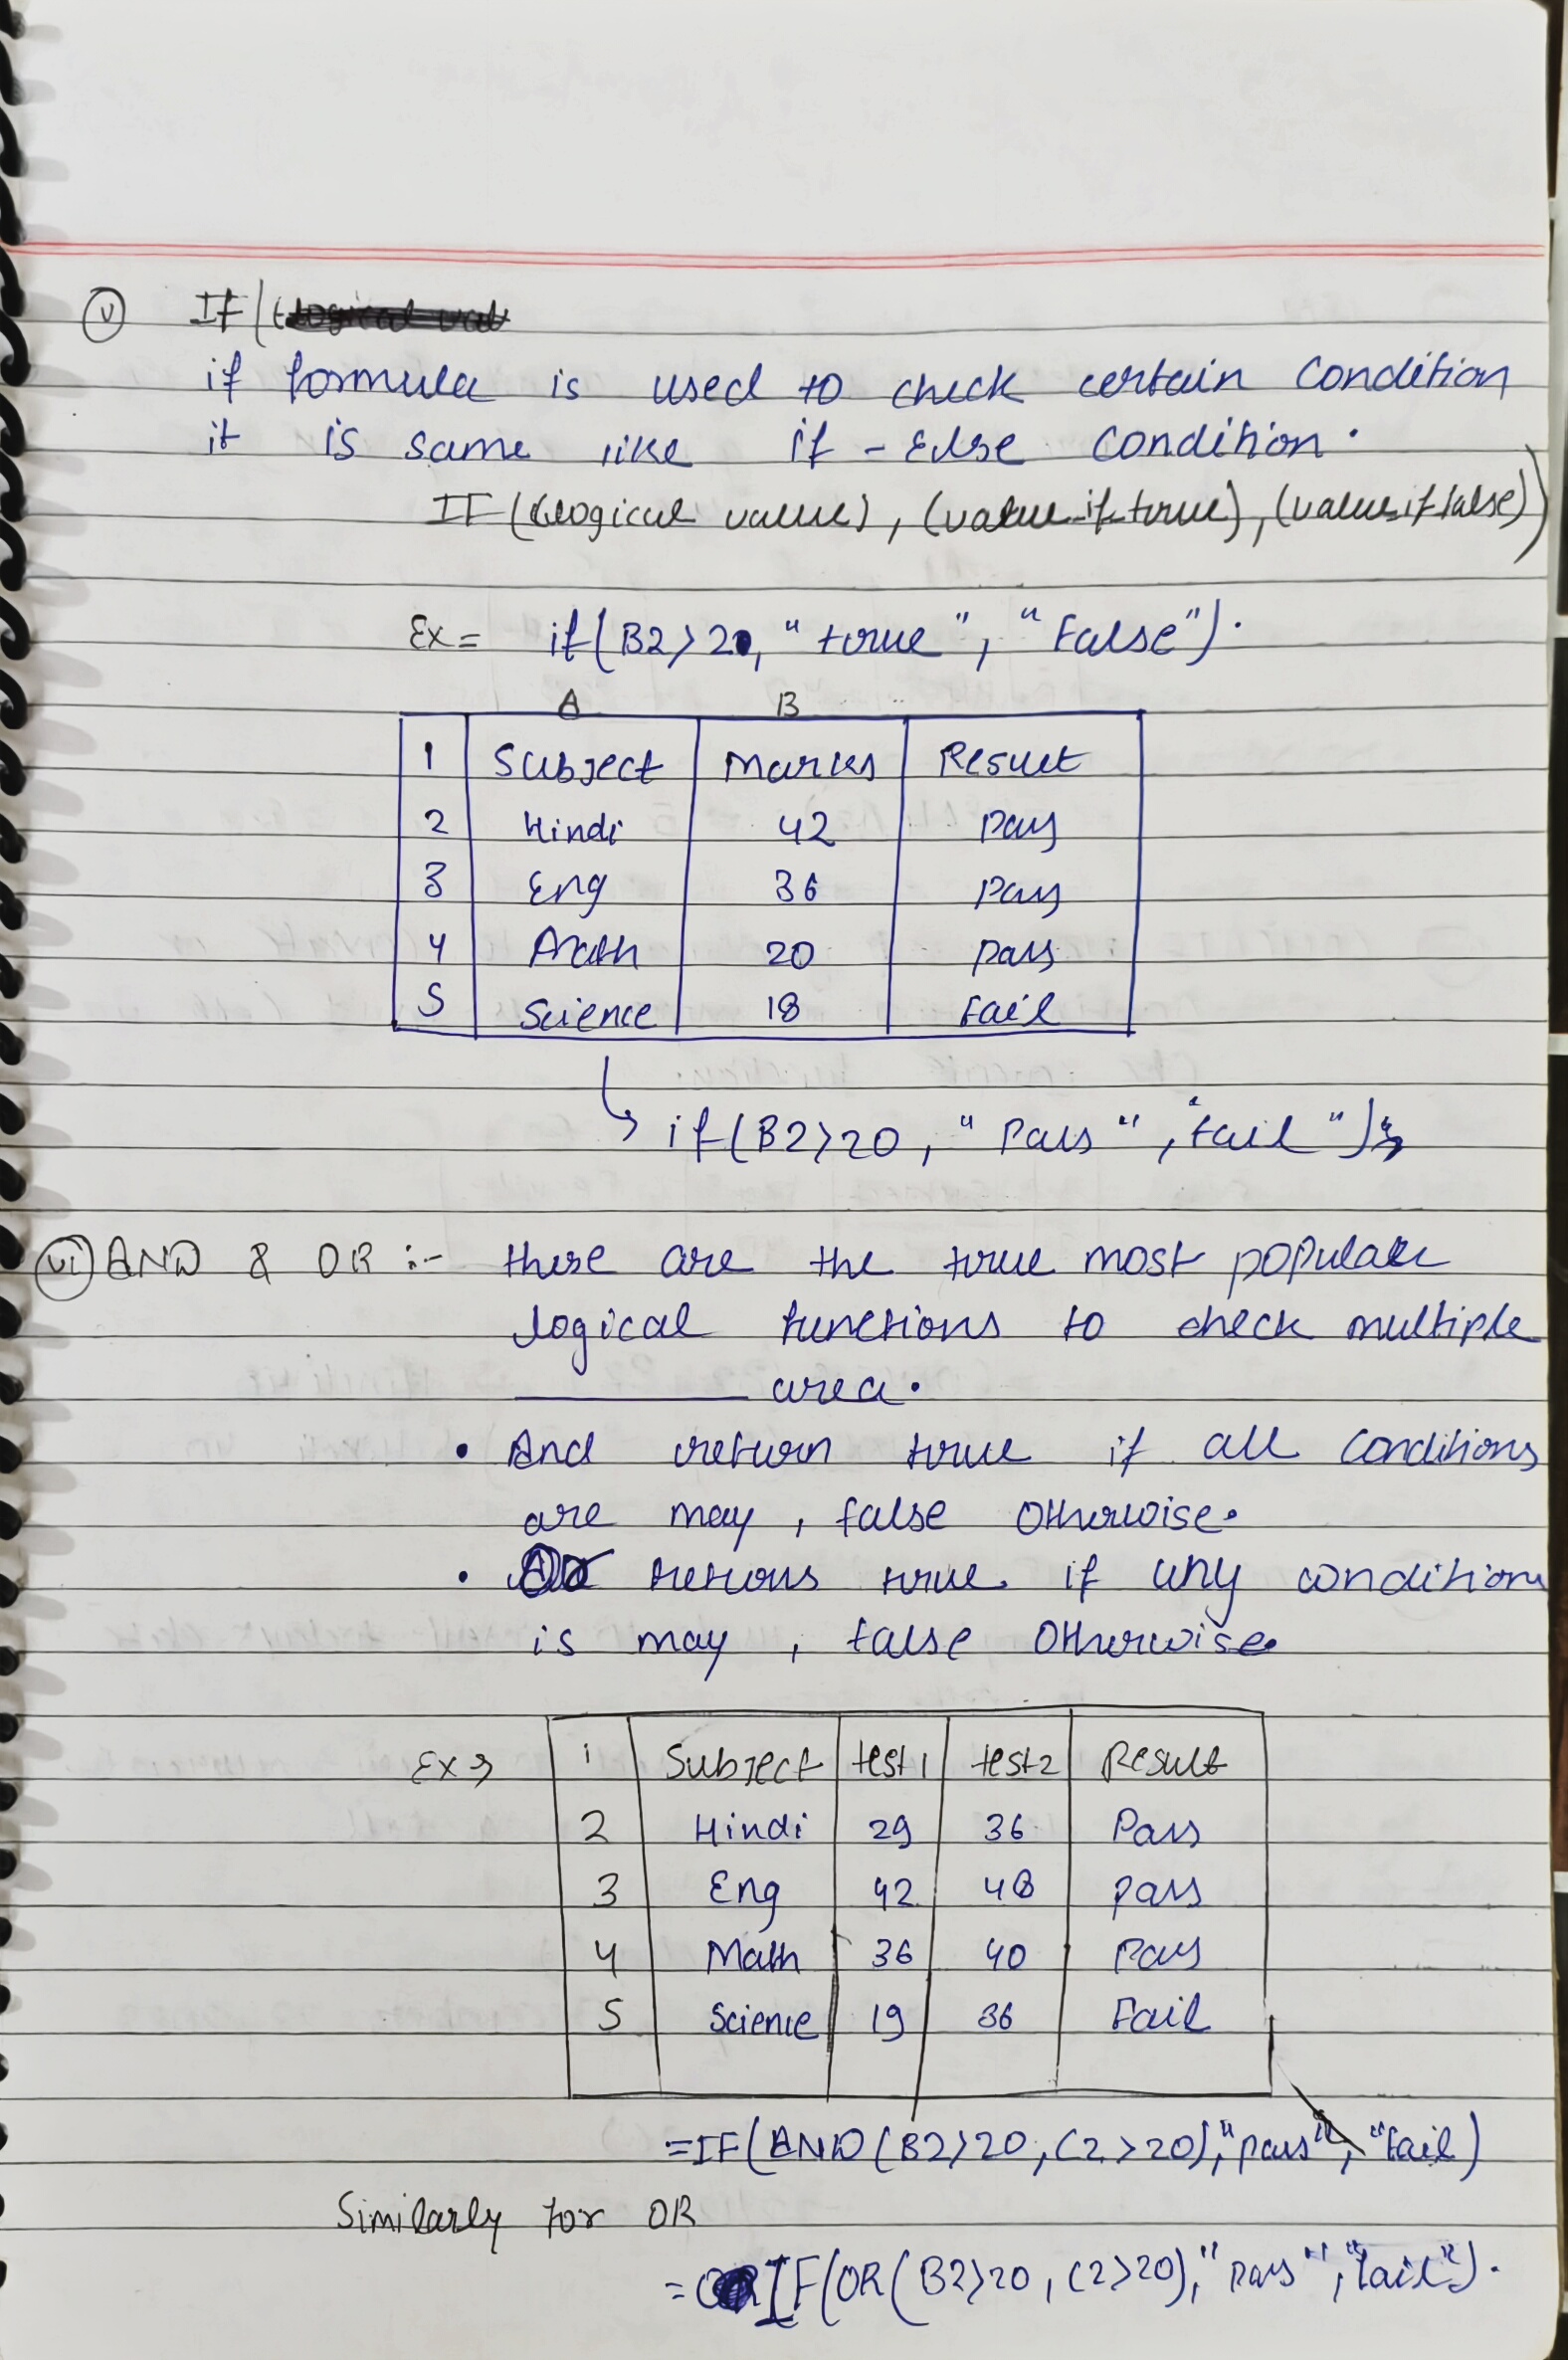 (v) IF(
if formula is used to check certain Condition
it is same like if - Else Condition.
IF((logical value), (value_if_true), (value_if false))
Ex = if(B2>20, "true", "False").
A B
1 Subject Marks Result
2 Hindi 42 pass
3 Eng 36 pass
4 Math 20 pass
5 Science 18 Fail
↳ if(B2>20, "Pass", "fail");
(vi) AND & OR :- these are the true most popular
logical functions to check multiple
area.
• And return true if all conditions
are may, false otherwise.
• Or returns true if any condition
is may, false otherwise.
Ex → 1 Subject test1 test2 Result
2 Hindi 29 36 Pass
3 Eng 42 48 pass
4 Math 36 40 Pass
5 Science 19 36 Fail
=IF(AND(B2>20, C2>20),"pass", "fail)
Similarly for OR
= IF(OR(B2>20, C2>20),"pass","fail").